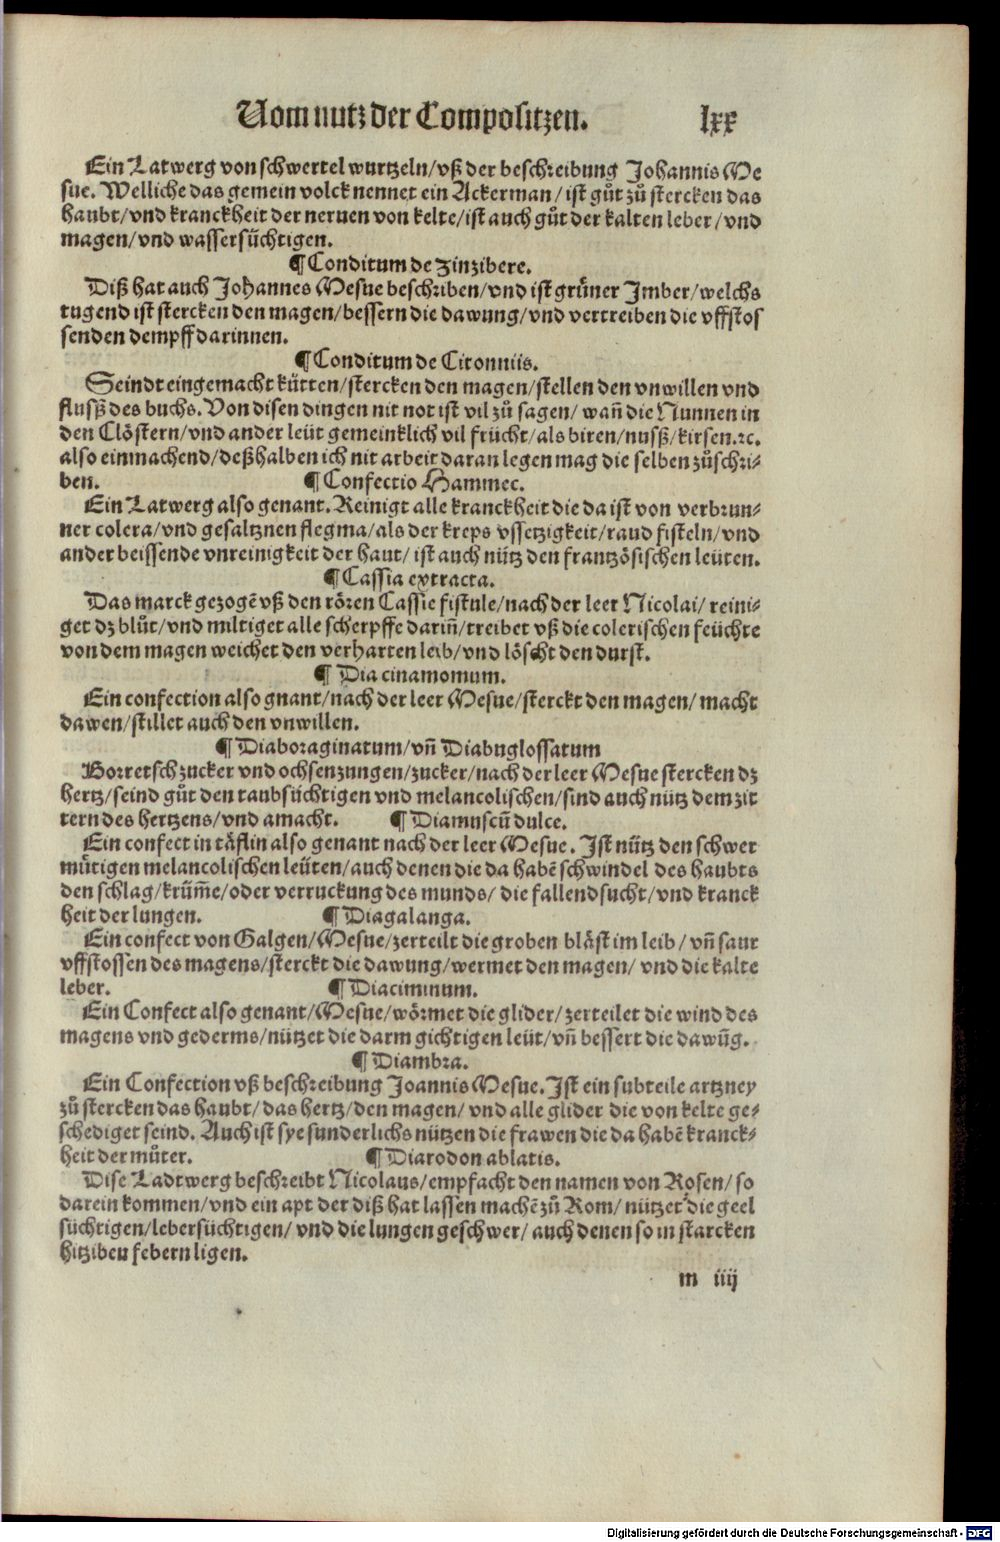 Vom nutz der Compositzen. lxx
Ein Latwerg von schwertel wurtzeln/vß der beschreibung Johannis Me
sue. Welliche das gemein volck nennet ein Ackerman/ist gůt zů stercken das
haubt/vnd kranckheit der neruen von kelte/ist auch gůt der kalten leber/vnd
magen/vnd wassersüchtigen.
¶Conditum de Zinzibere.
Diß hat auch Johannes Mesue beschriben/vnd ist grüner Imber/welchs
tugend ist stercken den magen/bessern die dawung/vnd vertreiben die vffstos
senden dempff darinnen.
¶Conditum de Citonniis.
Seindt eingemacht kütten/stercken den magen/stellen den vnwillen vnd
flusß des buchs. Von disen dingen nit not ist vil zů sagen/ wañ die Nunnen in
den Clöstern/vnd ander leüt gemeinklich vil frücht/als biren/nusß/kirsen.⁊c.
also einmachend/deßhalben ich nit arbeit daran legen mag die selben zůschri⸗
ben. ¶Confectio Hammec.
Ein Latwerg also genant. Reinigt alle kranckheit die da ist von verbrun⸗
ner colera/vnd gesaltznen flegma/als der kreps vssetzigkeit/raud fisteln/vnd
ander beissende vnreinigkeit der haut/ ist auch nütz den frantzösischen leüten.
¶Cassia extracta.
Das marck gezogē vß den rören Cassie fistule/nach der leer Nicolai/ reini⸗
get dz blůt/vnd miltiget alle scherpffe dariñ/treibet vß die colerischen feüchte
von dem magen weichet den verharten leib/vnd löscht den durst.
¶ Dia cinamomum.
Ein confection also gnant/nach der leer Mesue/sterckt den magen/ macht
dawen/stillet auch den vnwillen.
¶Diaboraginatum/vñ Diabuglossatum
Borretsch zucker vnd ochsenzungen/zucker/nach der leer Mesue stercken dz
hertz/seind gůt den taubsüchtigen vnd melancolischen/sind auch nütz dem zit
tern des hertzens/vnd amacht. ¶Diamuscū dulce.
Ein confect in täflin also genant nach der leer Mesue. Ist nütz den schwer
mütigen melancolischen leüten/auch denen die da habē schwindel des haubts
den schlag/krüm̄e/oder verruckung des munds/ die fallendsucht/vnd kranck
heit der lungen. ¶Diagalanga.
Ein confect von Galgen/Mesue/zerteilt die groben bläst im leib/vñ saur
vffstossen des magens/sterckt die dawung/wermet den magen/ vnd die kalte
leber. ¶Diaciminum.
Ein Confect also genant/Mesue/wörmet die glider/zerteilet die wind des
magens vnd gederms/nützet die darm gichtigen leüt/vñ bessert die dawūg.
¶Diambra.
Ein Confection vß beschreibung Joannis Mesue. Ist ein subteile artzney
zů stercken das haubt/das hertz/den magen/ vnd alle glider die von kelte ge⸗
schediget seind. Auch ist sye sunderlichs nützen die frawen die da habē kranck⸗
heit der můter. ¶Diarodon ablatis.
Dise Ladtwerg beschreibt Nicolaus/empfacht den namen von Rosen/so
darein kommen/vnd ein apt der diß hat lassen machē zů Rom/ nützet die geel
süchtigen/lebersüchtigen/ vnd die lungen geschwer/ auch denen so in starcken
hitziben febern ligen.
m iiij
Digitalisierung gefördert durch die Deutsche Forschungsgemeinschaft - DFG